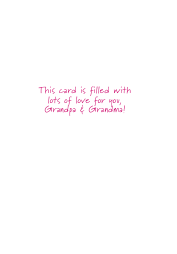 This card is filled with
lots of love for you,
Grandpa & Grandma!